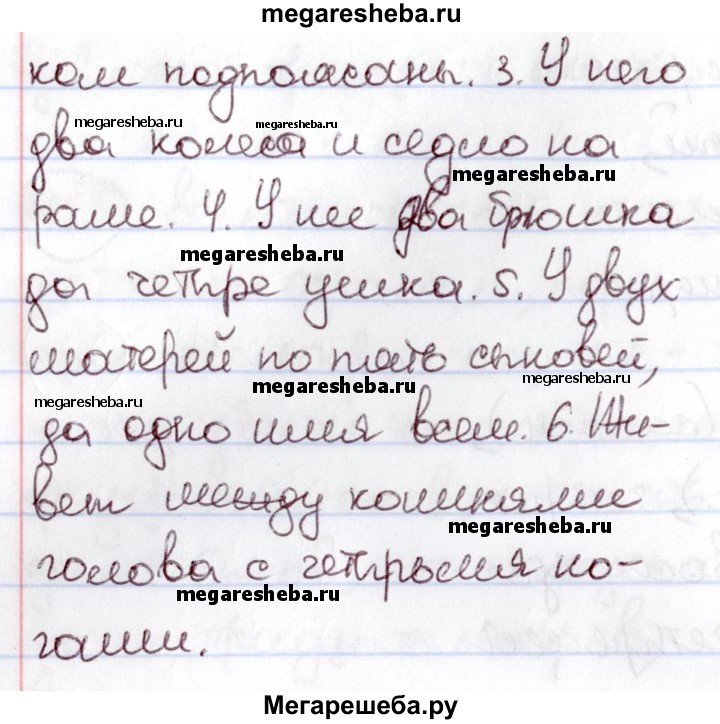 megaresheba.ru
ком подпоясаны. 3. У него
megaresheba.ru megaresheba.ru
два колеса и седло на
megaresheba.ru
раме. 4. У нее два брюшка
megaresheba.ru
да четыре ушка. 5. У двух
megaresheba.ru
матерей по пять сыновей,
megaresheba.ru
megaresheba.ru
да одно имя всем. 6. Жи-
вет между камнями
megaresheba.ru
голова с четырьмя но-
megaresheba.ru
гами.
Мегарешеба.ру